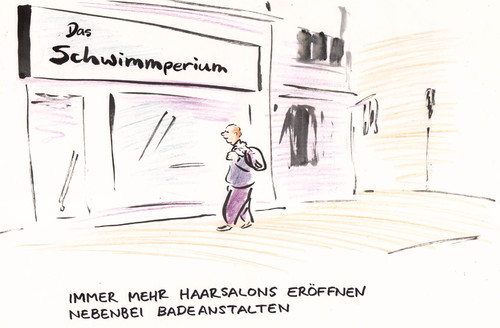 Das
Schwimmperium
IMMER MEHR HAARSALONS ERÖFFNEN
NEBENBEI BADEANSTALTEN